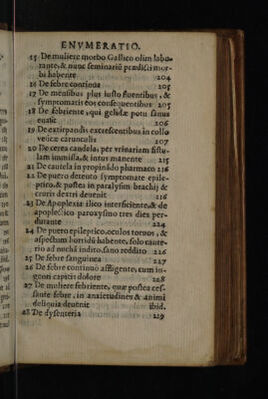 ENVMERATIO.
15 De muliere morbo Gallico olim labo-
rante, & nunc seminariũ prædicti mor-
bi habente 204
16 De febre continua 205
17 De mensibus plus iusto fluentibus, &
symptomatis eos consequentibus 205
18 De febriente, qui gelidæ potu sanus
euasit 206
19 De extirpandis excrescentibus in collo
vesicæ carunculis 207
20 De cerea candela, per vrinariam fistu-
lam immissa, & intus manente 215
21 De cautela in propinãdo pharmaco 216
22 De puero detento symptomate epile-
ptico, & postea in paralysim brachij &
cruris dextri deuenit 216
23 De Apoplexia ilico interficiente, & de
apoplectico paroxysmo tres dies per-
durante 224
24 De puero epileptico, oculos toruos, &
aspectum horridũ habente, solo caute-
rio ad nuchã indito, sano reddito 226
25 De febre sanguinea 227
26 De febre continuo affligente, cum in-
genti capitis dolore 228
27 De muliere febriente, quæ postea ces-
sante febre, in anxietudines & animi
deliquia deuenit ibid.
28 De dysenteria 229